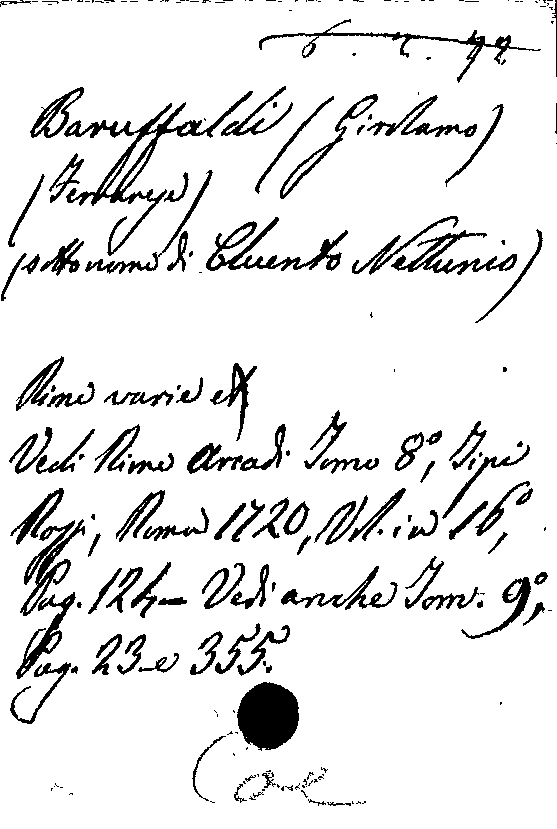 6. 2. 92
Baruffaldi (Girolamo)
(Ferrarese)
(sotto nome di Cluento Nettunio)
Rime varie
Vedi Rime Arcadi Tomo 8º, Tipi
Rossi, Roma 1720, Vol. in 16º,
Pag. 124 — Vedi anche Tom. 9º,
Pag. 23 e 355.